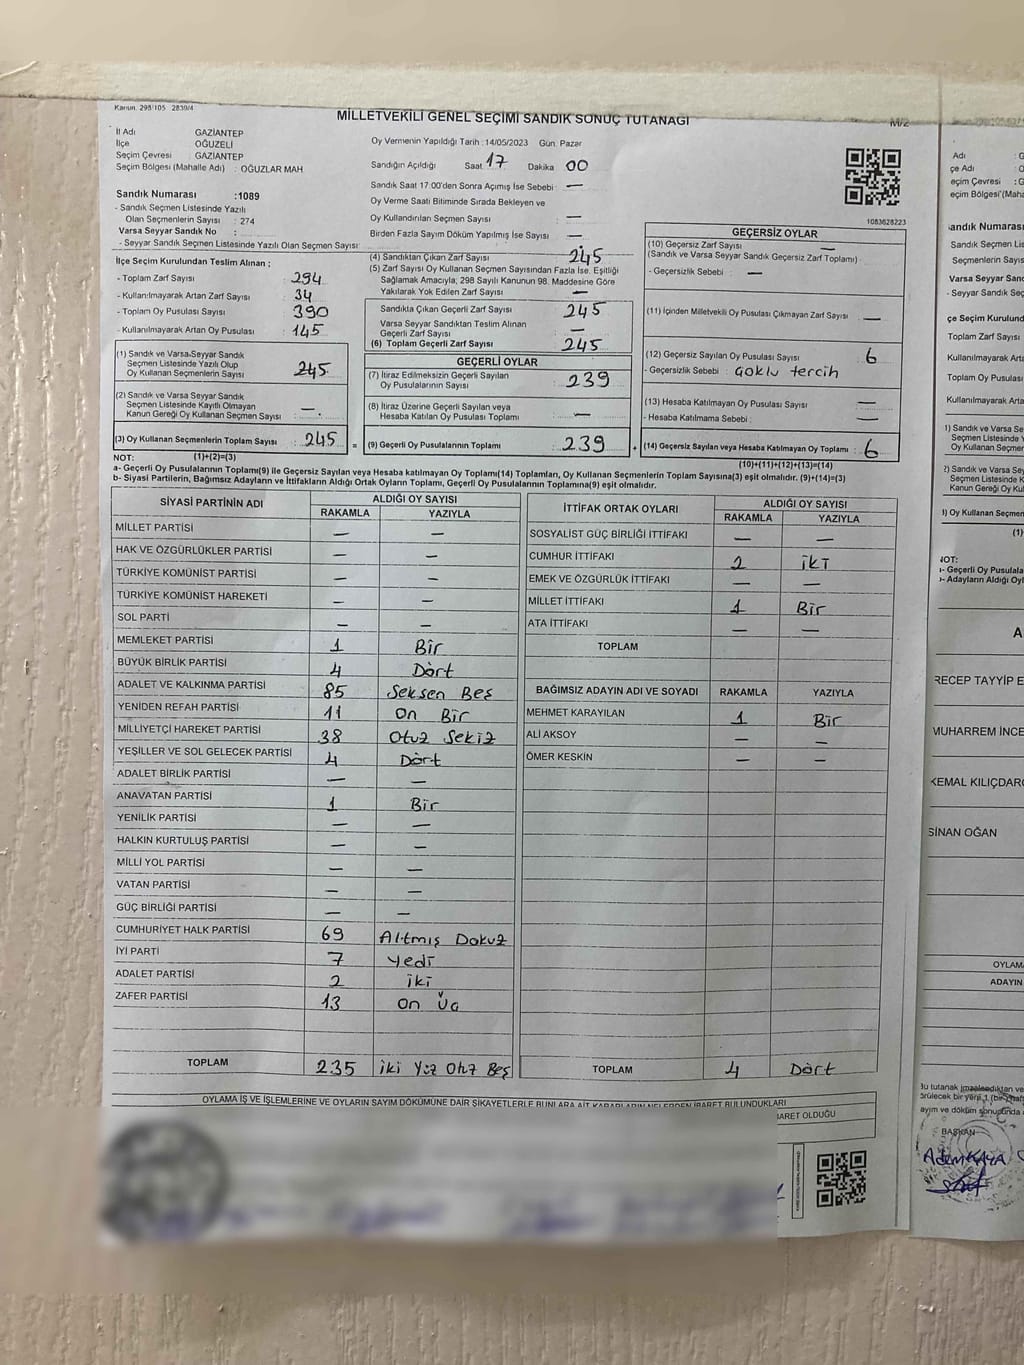 Kanun. 298/105 2839/4
MİLLETVEKİLİ GENEL SEÇİMİ SANDIK SONUÇ TUTANAĞI
M/2
İl Adı GAZİANTEP
İlçe OĞUZELİ
Seçim Çevresi : GAZİANTEP
Seçim Bölgesi (Mahalle Adı) : OĞUZLAR MAH.
Sandık Numarası :1089
- Sandık Seçmen Listesinde Yazılı
Olan Seçmenlerin Sayısı : 274
Varsa Seyyar Sandık No :
- Seyyar Sandık Seçmen Listesinde Yazılı Olan Seçmen Sayısı:
Oy Vermenin Yapıldığı Tarih : 14/05/2023 Gün: Pazar
Sandığın Açıldığı Saat 17 Dakika 00
Sandık Saat 17:00'den Sonra Açımış İse Sebebi : —
Oy Verme Saati Bitiminde Sırada Bekleyen ve
Oy Kullandırılan Seçmen Sayısı : —
Birden Fazla Sayım Döküm Yapılmış İse Sayısı : —
1083628223
İlçe Seçim Kurulundan Teslim Alınan ;
- Toplam Zarf Sayısı : 294
- Kullanılmayarak Artan Zarf Sayısı : 34
- Toplam Oy Pusulası Sayısı : 390
- Kullanılmayarak Artan Oy Pusulası : 145
(1) Sandık ve Varsa Seyyar Sandık
Seçmen Listesinde Yazılı Olup
Oy Kullanan Seçmenlerin Sayısı : 245
(2) Sandık ve Varsa Seyyar Sandık
Seçmen Listesinde Kayıtlı Olmayan
Kanun Gereği Oy Kullanan Seçmen Sayısı : —
(3) Oy Kullanan Seçmenlerin Toplam Sayısı : 245
(4) Sandıktan Çıkan Zarf Sayısı : 245
(5) Zarf Sayısı Oy Kullanan Seçmen Sayısından Fazla İse, Eşitliği
Sağlamak Amacıyla; 298 Sayılı Kanunun 98. Maddesine Göre
Yakılarak Yok Edilen Zarf Sayısı : —
Sandıkta Çıkan Geçerli Zarf Sayısı : 245
Varsa Seyyar Sandıktan Teslim Alınan
Geçerli Zarf Sayısı : —
(6) Toplam Geçerli Zarf Sayısı : 245
GEÇERLİ OYLAR
(7) İtiraz Edilmeksizin Geçerli Sayılan
Oy Pusulalarının Sayısı : 239
(8) İtiraz Üzerine Geçerli Sayılan veya
Hesaba Katılan Oy Pusulası Toplamı : —
= (9) Geçerli Oy Pusulalarının Toplamı : 239
GEÇERSİZ OYLAR
(10) Geçersiz Zarf Sayısı —
(Sandık ve Varsa Seyyar Sandık Geçersiz Zarf Toplamı) :
- Geçersizlik Sebebi : —
(11) İçinden Milletvekili Oy Pusulası Çıkmayan Zarf Sayısı : —
(12) Geçersiz Sayılan Oy Pusulası Sayısı : 6
- Geçersizlik Sebebi : Çoklu tercih
(13) Hesaba Katılmayan Oy Pusulası Sayısı : —
- Hesaba Katılmama Sebebi : —
+ (14) Geçersiz Sayılan veya Hesaba Katılmayan Oy Toplamı : 6
NOT: (1)+(2)=(3)
(10)+(11)+(12)+(13)=(14)
a- Geçerli Oy Pusulalarının Toplamı(9) ile Geçersiz Sayılan veya Hesaba katılmayan Oy Toplamı(14) Toplamları, Oy Kullanan Seçmenlerin Toplam Sayısına(3) eşit olmalıdır. (9)+(14)=(3)
b- Siyasi Partilerin, Bağımsız Adayların ve İttifakların Aldığı Ortak Oyların Toplamı, Geçerli Oy Pusulalarının Toplamına(9) eşit olmalıdır.
SİYASİ PARTİNİN ADI ALDIĞI OY SAYISI
RAKAMLA YAZIYLA
MİLLET PARTİSİ — —
HAK VE ÖZGÜRLÜKLER PARTİSİ — —
TÜRKİYE KOMÜNİST PARTİSİ — —
TÜRKİYE KOMÜNİST HAREKETİ — —
SOL PARTİ — —
MEMLEKET PARTİSİ 1 Bir
BÜYÜK BİRLİK PARTİSİ 4 Dört
ADALET VE KALKINMA PARTİSİ 85 Seksen Beş
YENİDEN REFAH PARTİSİ 11 On Bir
MİLLİYETÇİ HAREKET PARTİSİ 38 Otuz Sekiz
YEŞİLLER VE SOL GELECEK PARTİSİ 4 Dört
ADALET BİRLİK PARTİSİ — —
ANAVATAN PARTİSİ 1 Bir
YENİLİK PARTİSİ — —
HALKIN KURTULUŞ PARTİSİ — —
MİLLİ YOL PARTİSİ — —
VATAN PARTİSİ — —
GÜÇ BİRLİĞİ PARTİSİ — —
CUMHURİYET HALK PARTİSİ 69 Altmış Dokuz
İYİ PARTİ 7 Yedi
ADALET PARTİSİ 2 iki
ZAFER PARTİSİ 13 On Üç
TOPLAM 235 iki Yüz Otuz Beş
İTTİFAK ORTAK OYLARI ALDIĞI OY SAYISI
RAKAMLA YAZIYLA
SOSYALİST GÜÇ BİRLİĞİ İTTİFAKI — —
CUMHUR İTTİFAKI 2 iki
EMEK VE ÖZGÜRLÜK İTTİFAKI — —
MİLLET İTTİFAKI 1 Bir
ATA İTTİFAKI — —
TOPLAM
BAĞIMSIZ ADAYIN ADI VE SOYADI RAKAMLA YAZIYLA
MEHMET KARAYILAN 1 Bir
ALİ AKSOY — —
ÖMER KESKİN — —
TOPLAM 4 Dört
OYLAMA İŞ VE İŞLEMLERİNE VE OYLARIN SAYIM DÖKÜMÜNE DAİR ŞİKAYETLERLE BUNLARA AİT KARARLARIN NELERDEN İBARET BULUNDUKLARI
BARET OLDUĞU
Adı : G
çe Adı : O
eçim Çevresi : G
eçim Bölgesi (Maha
andık Numarası
Sandık Seçmen Lis
Seçmenlerin Sayıs
Varsa Seyyar Sand
- Seyyar Sandık Seç
çe Seçim Kurulund
Toplam Zarf Sayısı
Kullanılmayarak Artan
Toplam Oy Pusulası
Kullanılmayarak Arta
1) Sandık ve Varsa Se
Seçmen Listesinde
Oy Kullanan Seçme
2) Sandık ve Varsa Sey
Seçmen Listesinde K
Kanun Gereği Oy Kul
3) Oy Kullanan Seçmen
(1)
NOT:
- Geçerli Oy Pusulala
- Adayların Aldığı Oyl
A
RECEP TAYYİP E
MUHARREM İNCE
KEMAL KILIÇDAR
SİNAN OĞAN
OYLAMA
ADAYIN
Bu tutanak imzalandıktan ve
örülecek bir yere 1 (bir) haf
ayım ve döküm sonucunda
BAŞKAN
Adem KAYA